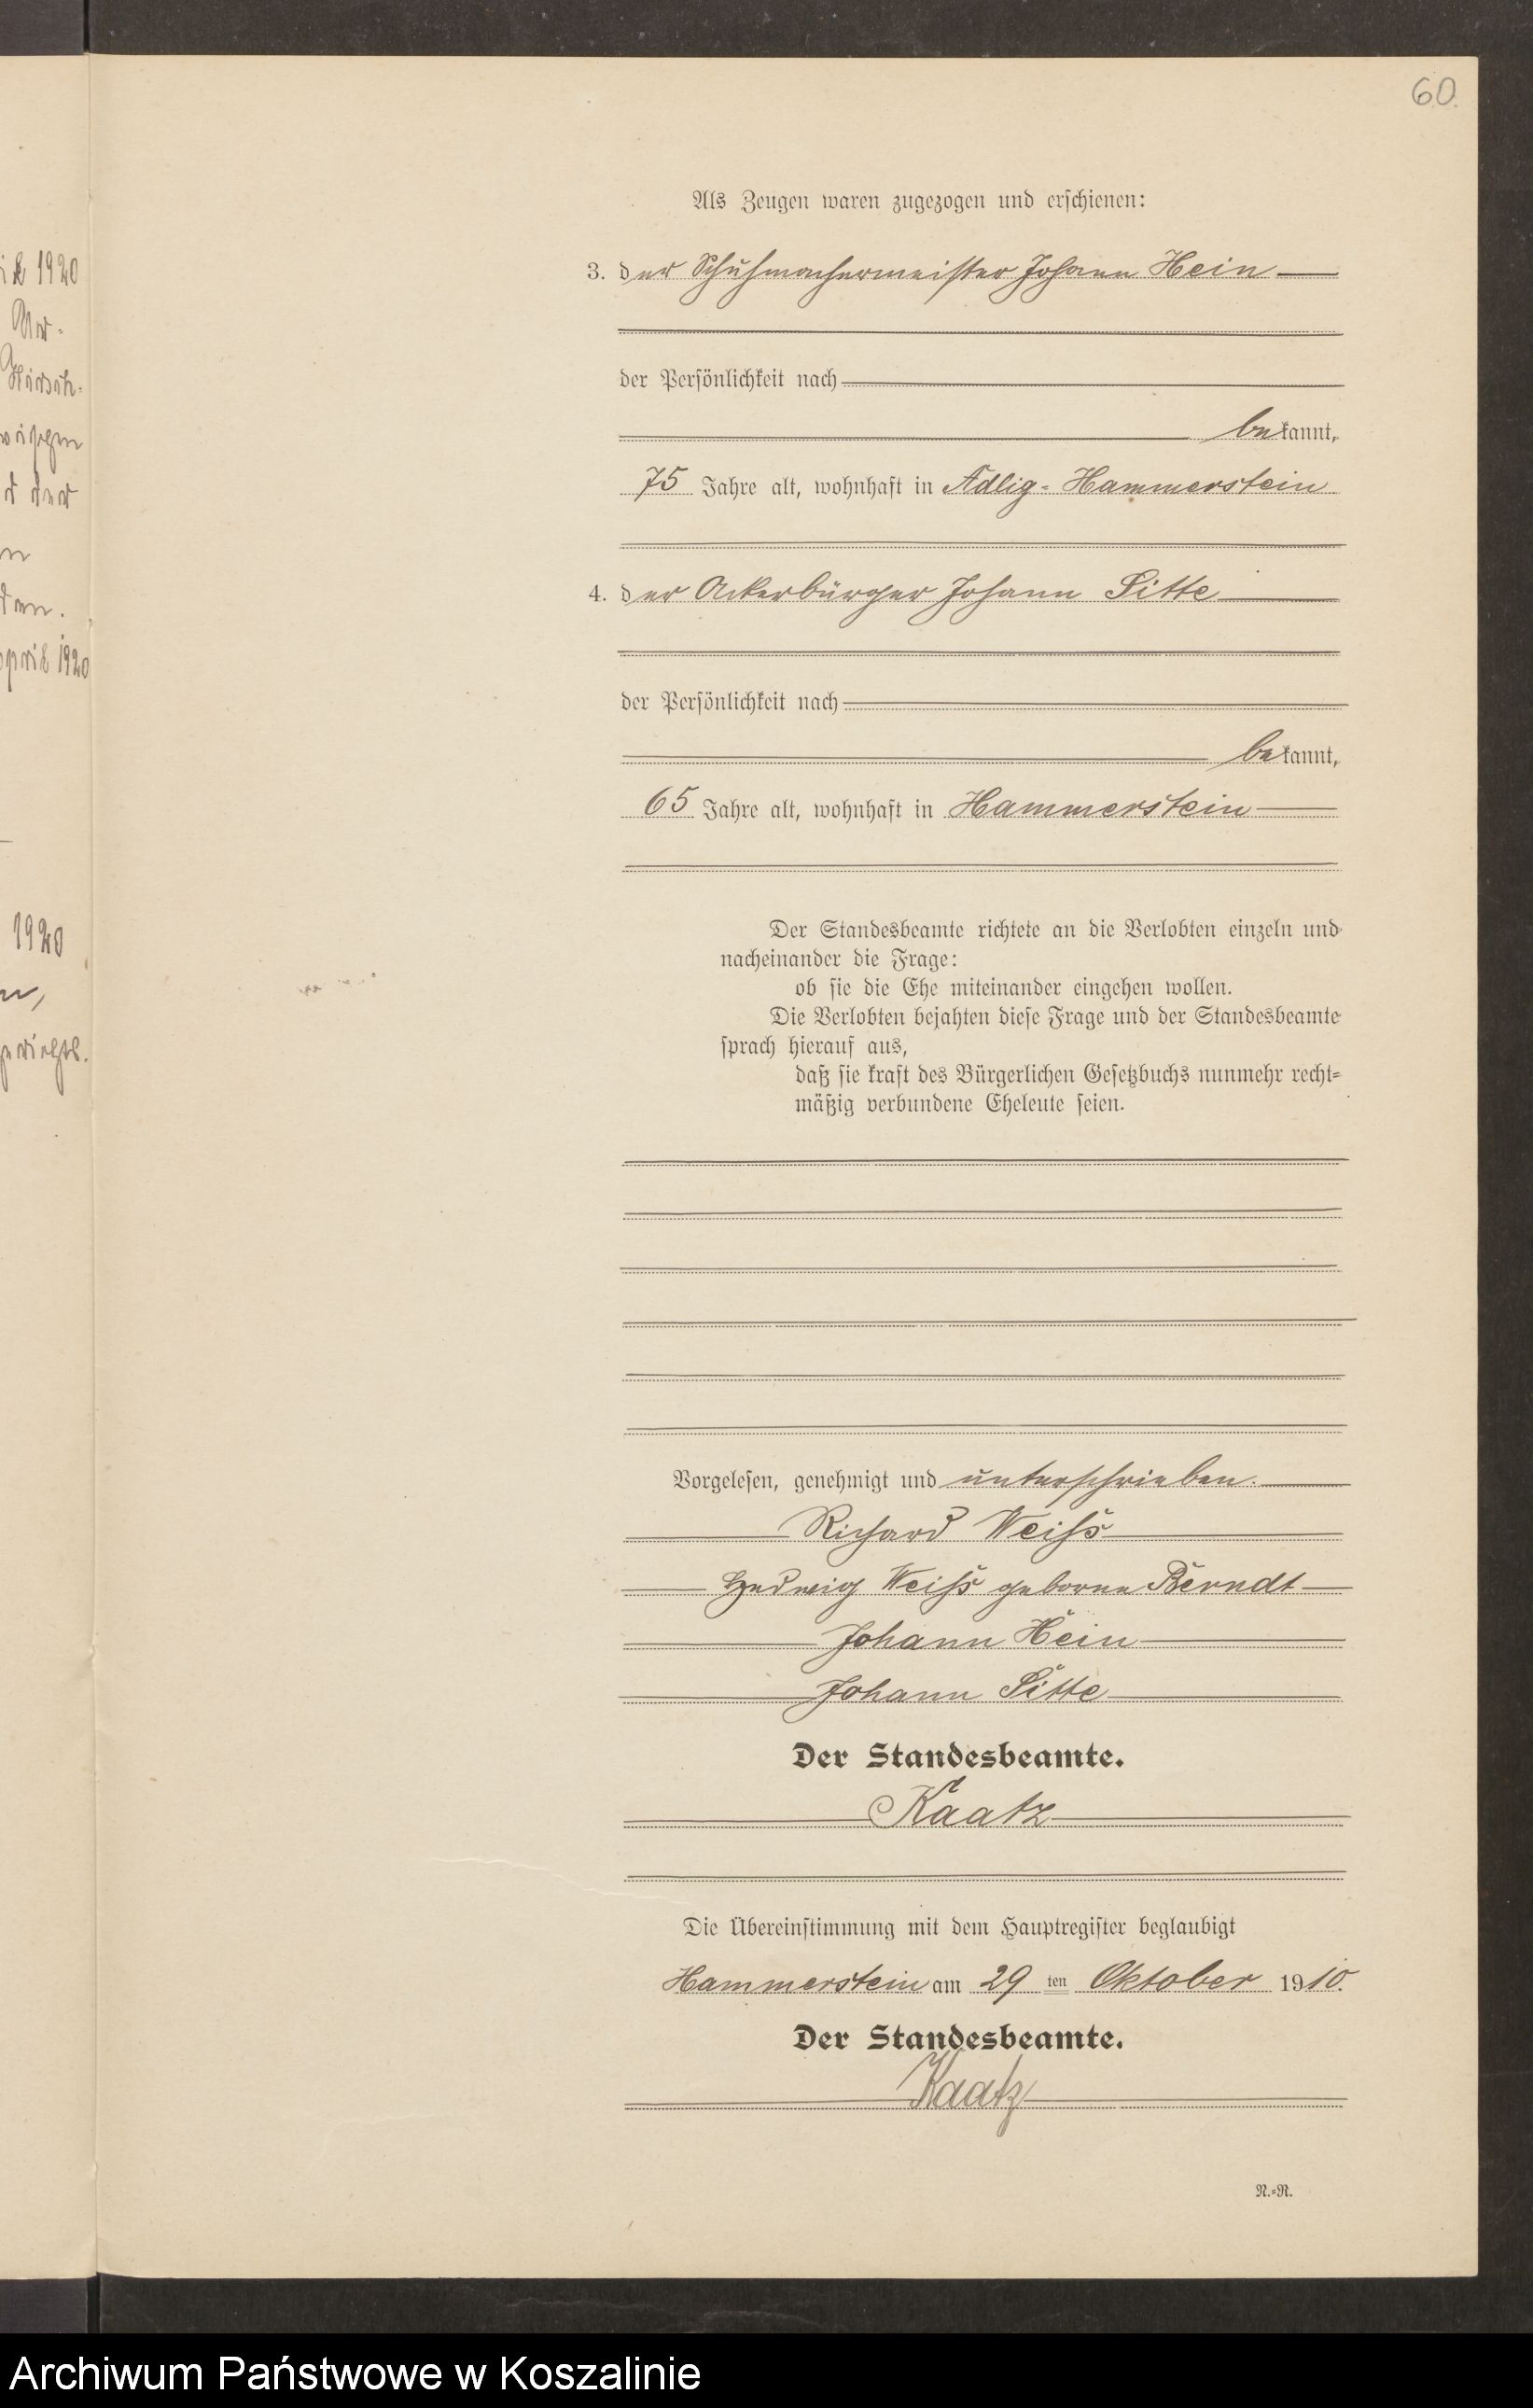 60.
Als Zeugen waren zugezogen und erschienen:
3. der Schuhmachermeister Johann Hein
der Persönlichkeit nach
bekannt,
75 Jahre alt, wohnhaft in Adlig-Hammerstein
4. der Ackerbürger Johann Sitte
der Persönlichkeit nach
bekannt,
65 Jahre alt, wohnhaft in Hammerstein
Der Standesbeamte richtete an die Verlobten einzeln und
nacheinander die Frage:
ob sie die Ehe miteinander eingehen wollen.
Die Verlobten bejahten diese Frage und der Standesbeamte
sprach hierauf aus,
daß sie kraft des Bürgerlichen Gesetzbuchs nunmehr recht-
mäßig verbundene Eheleute seien.
Vorgelesen, genehmigt und unterschrieben.
Richard Weiß
Hedwig Weiß geborne Berndt
Johann Hein
Johann Sitte
Der Standesbeamte.
Kaatz
Die Übereinstimmung mit dem Hauptregister beglaubigt
Hammerstein am 29 ten Oktober 1910.
Der Standesbeamte.
Kaatz
N.-R.
1920
1920
1920
Archiwum Państwowe w Koszalinie